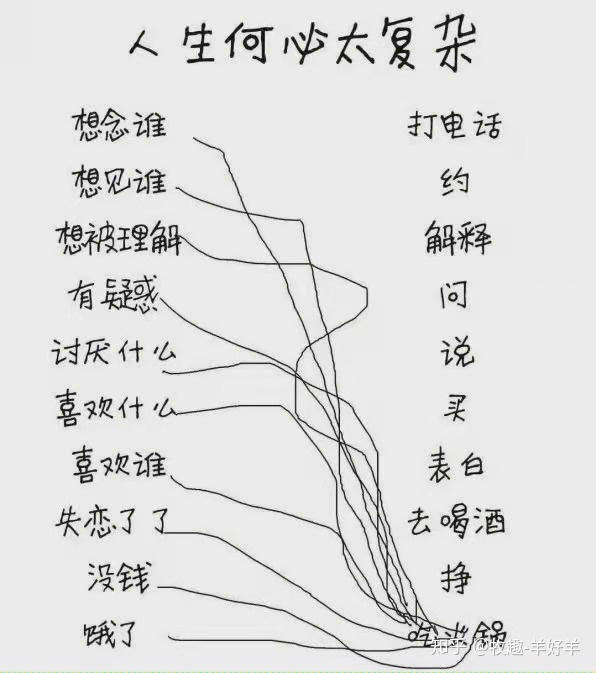 人生何必太复杂
想念谁 打电话
想见谁 约
想被理解 解释
有疑惑 问
讨厌什么 说
喜欢什么 买
喜欢谁 表白
失恋了了 去喝酒
没钱 挣
饿了 吃火锅
知乎 @牧趣-羊好羊